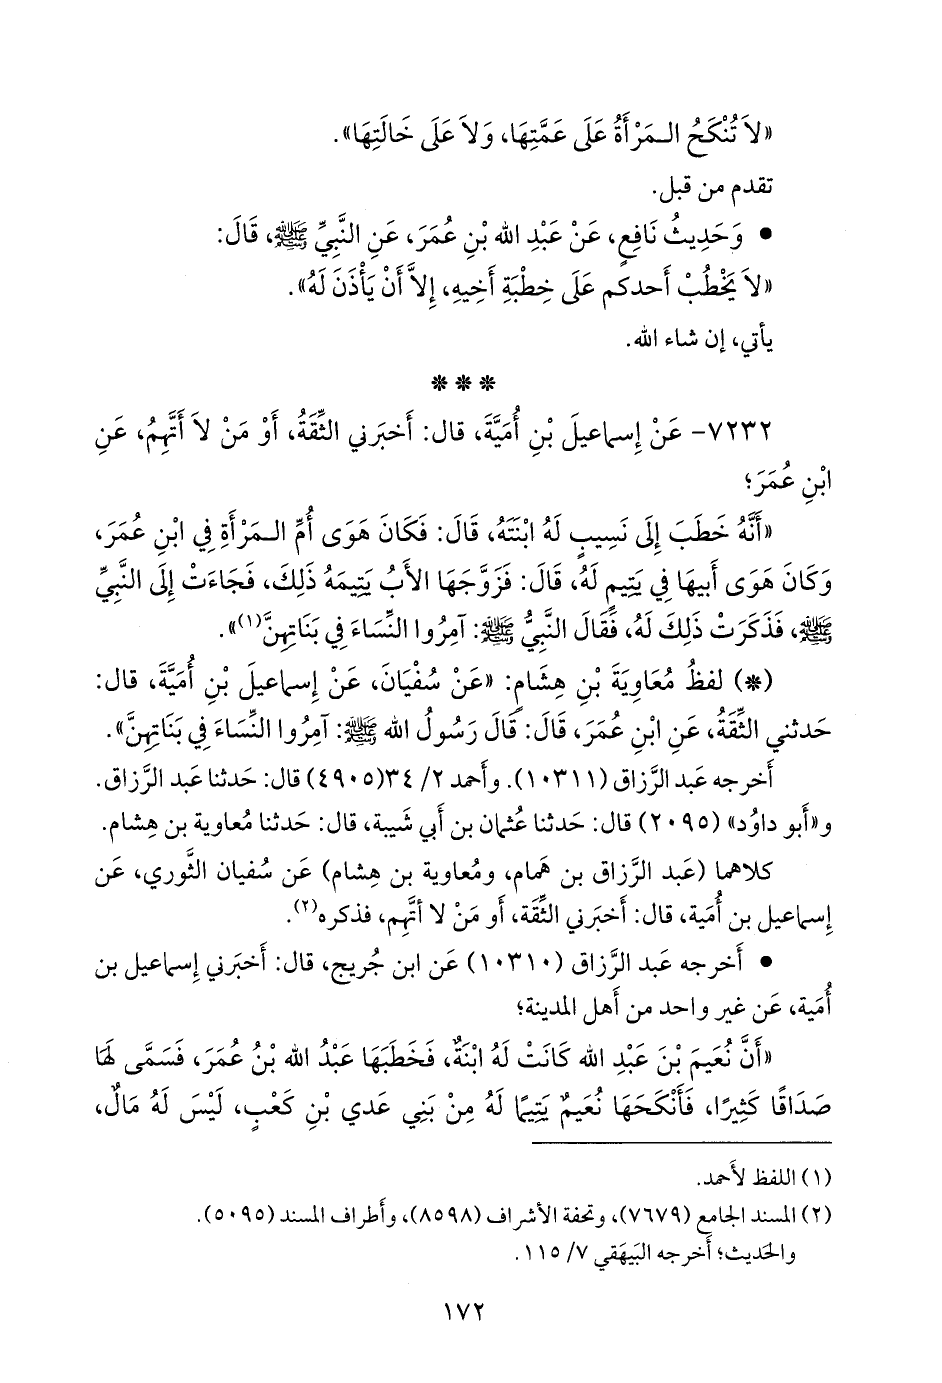 «لاَ تُنْكَحُ الـمَرْأَةُ عَلَى عَمَّتِهَا، وَلاَ عَلَى خَالَتِهَا».
تقدم من قبل.
• وَحَدِيثُ نَافِعٍ، عَنْ عَبْدِ الله بْنِ عُمَرَ، عَنِ النَّبِيِّ ﷺ، قَالَ:
«لاَ يَخْطُبْ أحدكم عَلَى خِطْبَةِ أَخِيهِ، إِلاَّ أَنْ يَأْذَنَ لَهُ».
يأتي، إن شاء الله.
* * *
٧٢٣٢- عَنْ إِسماعيلَ بْنِ أُمَيَّةَ، قال: أَخبَرني الثِّقَةُ، أَوْ مَنْ لاَ أَتَّهِمُ، عَنِ
ابْنِ عُمَرَ؛
«أَنَّهُ خَطَبَ إِلَى نَسِيبٍ لَهُ ابْنَتَهُ، قَالَ: فَكَانَ هَوَى أُمِّ الـمَرْأَةِ فِي ابْنِ عُمَرَ،
وَكَانَ هَوَى أَبِيهَا فِي يَتِيمٍ لَهُ، قَالَ: فَزَوَّجَهَا الأَبُ يَتِيمَهُ ذَلِكَ، فَجَاءَتْ إِلَى النَّبِيِّ
ﷺ، فَذَكَرَتْ ذَلِكَ لَهُ، فَقَالَ النَّبِيُّ ﷺ: آمِرُوا النِّسَاءَ فِي بَنَاتِهِنَّ(١)».
(*) لفظُ مُعَاوِيَةَ بْنِ هِشَامٍ: «عَنْ سُفْيَانَ، عَنْ إِسماعيلَ بْنِ أُمَيَّةَ، قال:
حَدثني الثِّقَةُ، عَنِ ابْنِ عُمَرَ، قَالَ: قَالَ رَسُولُ الله ﷺ: آمِرُوا النِّسَاءَ فِي بَنَاتِهِنَّ».
أَخرجه عَبد الرَّزاق (١٠٣١١). وأَحمد ٢/ ٣٤(٤٩٠٥) قال: حَدثنا عَبد الرَّزاق.
و«أَبو داوُد» (٢٠٩٥) قال: حَدثنا عُثمان بن أَبي شَيبة، قال: حَدثنا مُعاوية بن هِشام.
كلاهما (عَبد الرَّزاق بن هَمام، ومُعاوية بن هِشام) عَن سُفيان الثَّوري، عَن
إِسماعيل بن أُمَية، قال: أَخبَرني الثِّقَة، أَو مَنْ لا أتَّهم، فذكره(٢).
• أَخرجه عَبد الرَّزاق (١٠٣١٠) عَن ابن جُريج، قال: أَخبَرني إِسماعيل بن
أُمَية، عَن غير واحد من أَهل المدينة؛
«أَنَّ نُعَيمَ بْنَ عَبْدِ الله كَانَتْ لَهُ ابْنَةٌ، فَخَطَبَهَا عَبْدُ الله بْنُ عُمَرَ، فَسَمَّى لَهَا
صَدَاقًا كَثِيرًا، فَأَنْكَحَهَا نُعَيمٌ يَتِيمًا لَهُ مِنْ بَنِي عَدي بْنِ كَعْبٍ، لَيْسَ لَهُ مَالٌ،
(١) اللفظ لأَحمد.
(٢) المسند الجامع (٧٦٧٩)، وتحفة الأشراف (٨٥٩٨)، وأَطراف المسند (٥٠٩٥).
والحَديث؛ أَخرجه البَيهَقي ٧/ ١١٥.
١٧٢